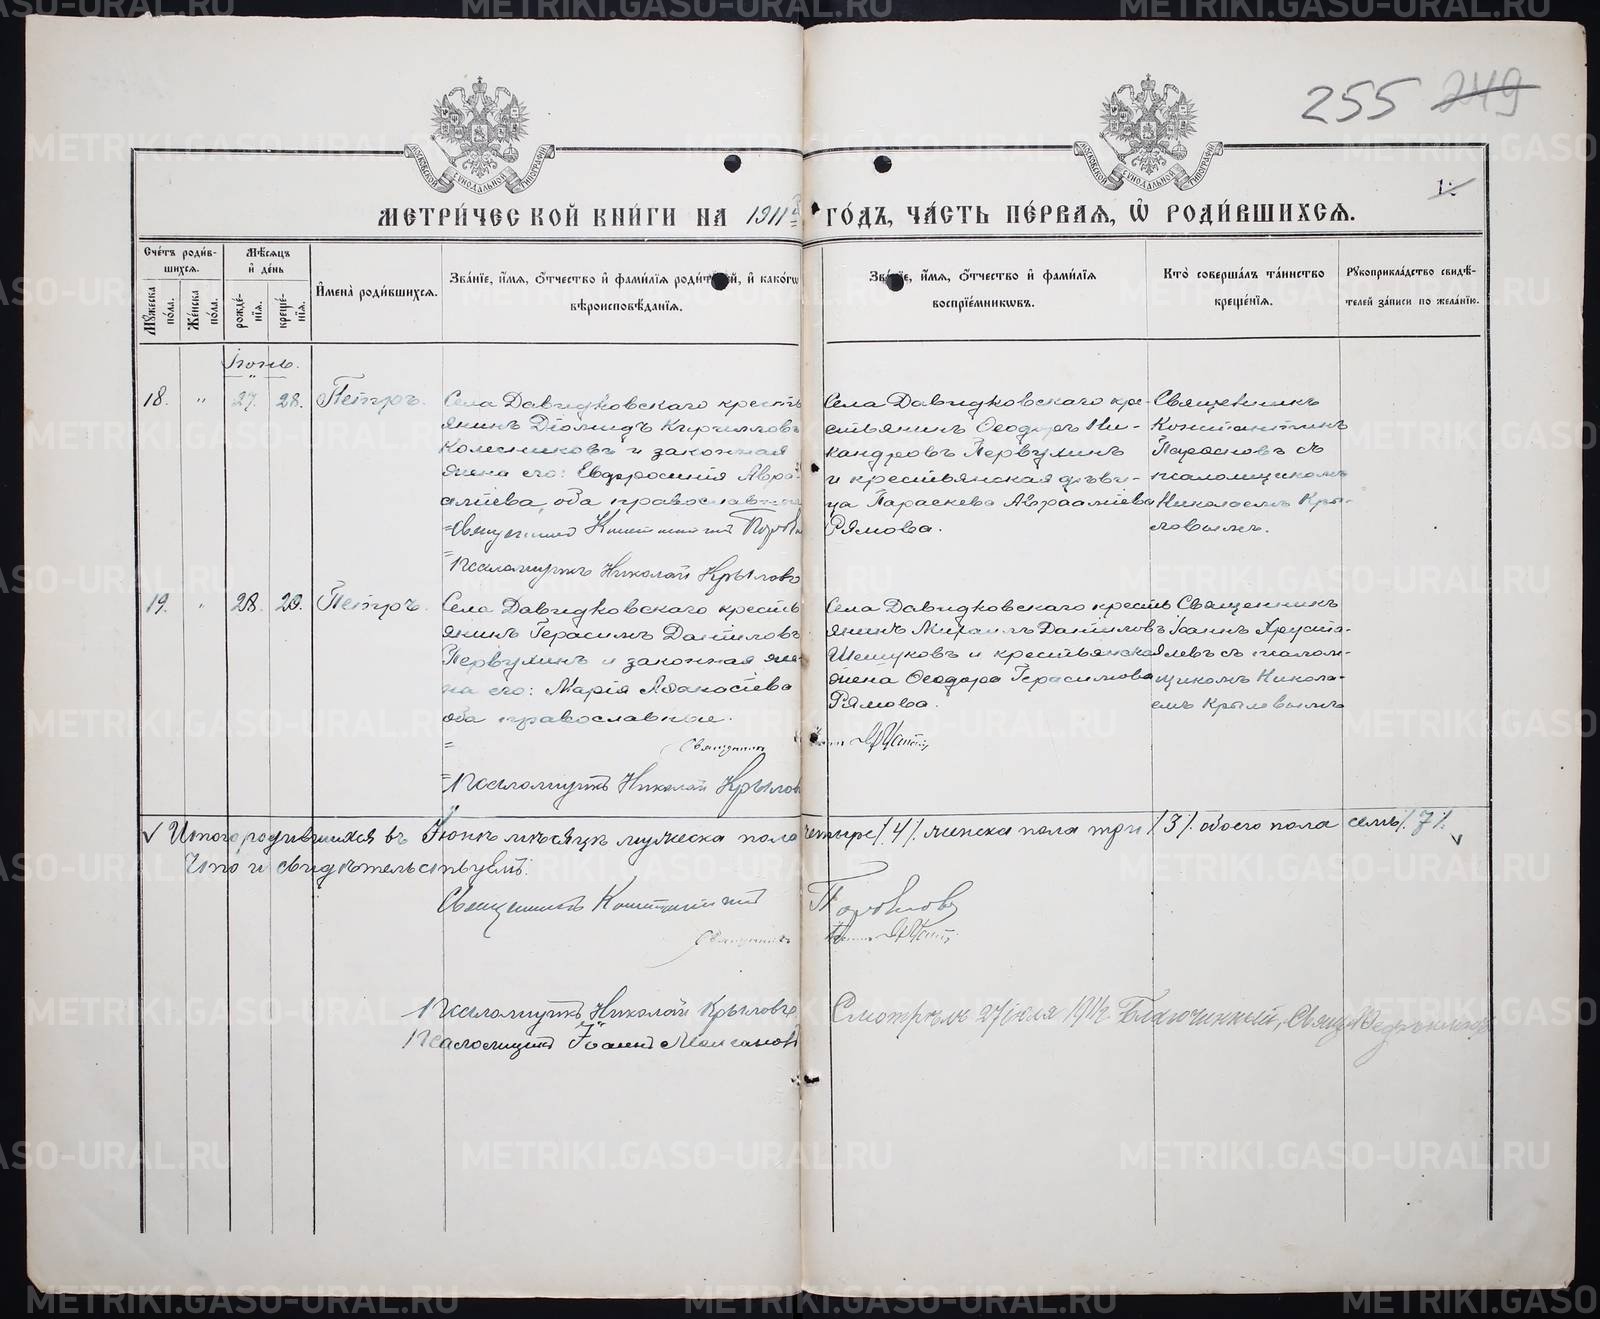 255 249
МОСКОВСКОЙ СѴНОДАЛЬНОЙ ТИПОГРАФІИ
МОСКОВСКОЙ СѴНОДАЛЬНОЙ ТИПОГРАФІИ
МЕТРИ́ЧЕСКОЙ КНИ́ГИ НА 1911й ГО́ДЪ, ЧА́СТЬ ПЕ́РВАѦ, Ѡ РОДИ́ВШИХСѦ.
Сче́тъ роди́в-
шихсѧ.
Мꙋ́жеска по́ла.
Же́нска по́ла.
Мѣ́сѧцъ
и҆ де́нь
рожде́-
нїѧ.
креще́-
нїѧ.
И҆мена̀ роди́вшихсѧ.
Зва́нїе, и҆́мѧ, ѻ҆́тчество и҆ фами́лїѧ роди́телей, и҆ како́гѡ
вѣроисповѣ́данїѧ.
Зва́нїе, и҆́мѧ, ѻ҆́тчество и҆ фами́лїѧ
воспрїе́мникѡвъ.
Кто̀ соверша́лъ та́инство
креще́нїѧ.
Рꙋкоприкла́дство свидѣ́-
телей за́писи по жела́нїю.
Іюнь.
18. " 27. 28. Петръ.
Села Давыдковскаго кресть
янинъ Діомидъ Кирилловъ
Колесниковъ и законная
жена его: Евфросинія Авра-
аміева, оба православные
Священникъ Константинъ
Псаломщикъ Николай Крыловъ
Села Давыдковскаго кре-
стьянинъ Ѳеодоръ Ни-
кандровъ Первухинъ
и крестьянская дѣви-
ца Параскева Авраамiева
Рямова.
Священникъ
Константинъ
съ
псаломщикомъ
Николаемъ Кры-
ловымъ.
19. " 28. 29. Петръ.
Села Давыдковскаго кресть
янинъ Герасимъ Даниловъ
Первухинъ и законная же-
на его: Марія Аѳанасіева
оба православные.
Священникъ
Псаломщикъ Николай Крыловъ
Села Давыдковскаго кресть
янинъ Михаилъ Даниловъ
Шешуковъ и крестьянская
жена Ѳеодора Герасимова
Рямова.
Священникъ
Іоаннъ Хруста-
левъ съ псалом-
щикомъ Никола-
емъ Крыловымъ
Итого родившихся въ Іюнѣ мѣсяцѣ мужеска пола четыре /4/ женска пола три /3/ обоего пола семь /7/
Что и свидѣтельствуемъ:
Священникъ Константинъ
Священникъ
Псаломщикъ Николай Крыловъ
Псаломщикъ Іоаннъ
Смотрѣлъ 27 іюля Благочинный, Свящ.
METRIKI.GASO-URAL.RU